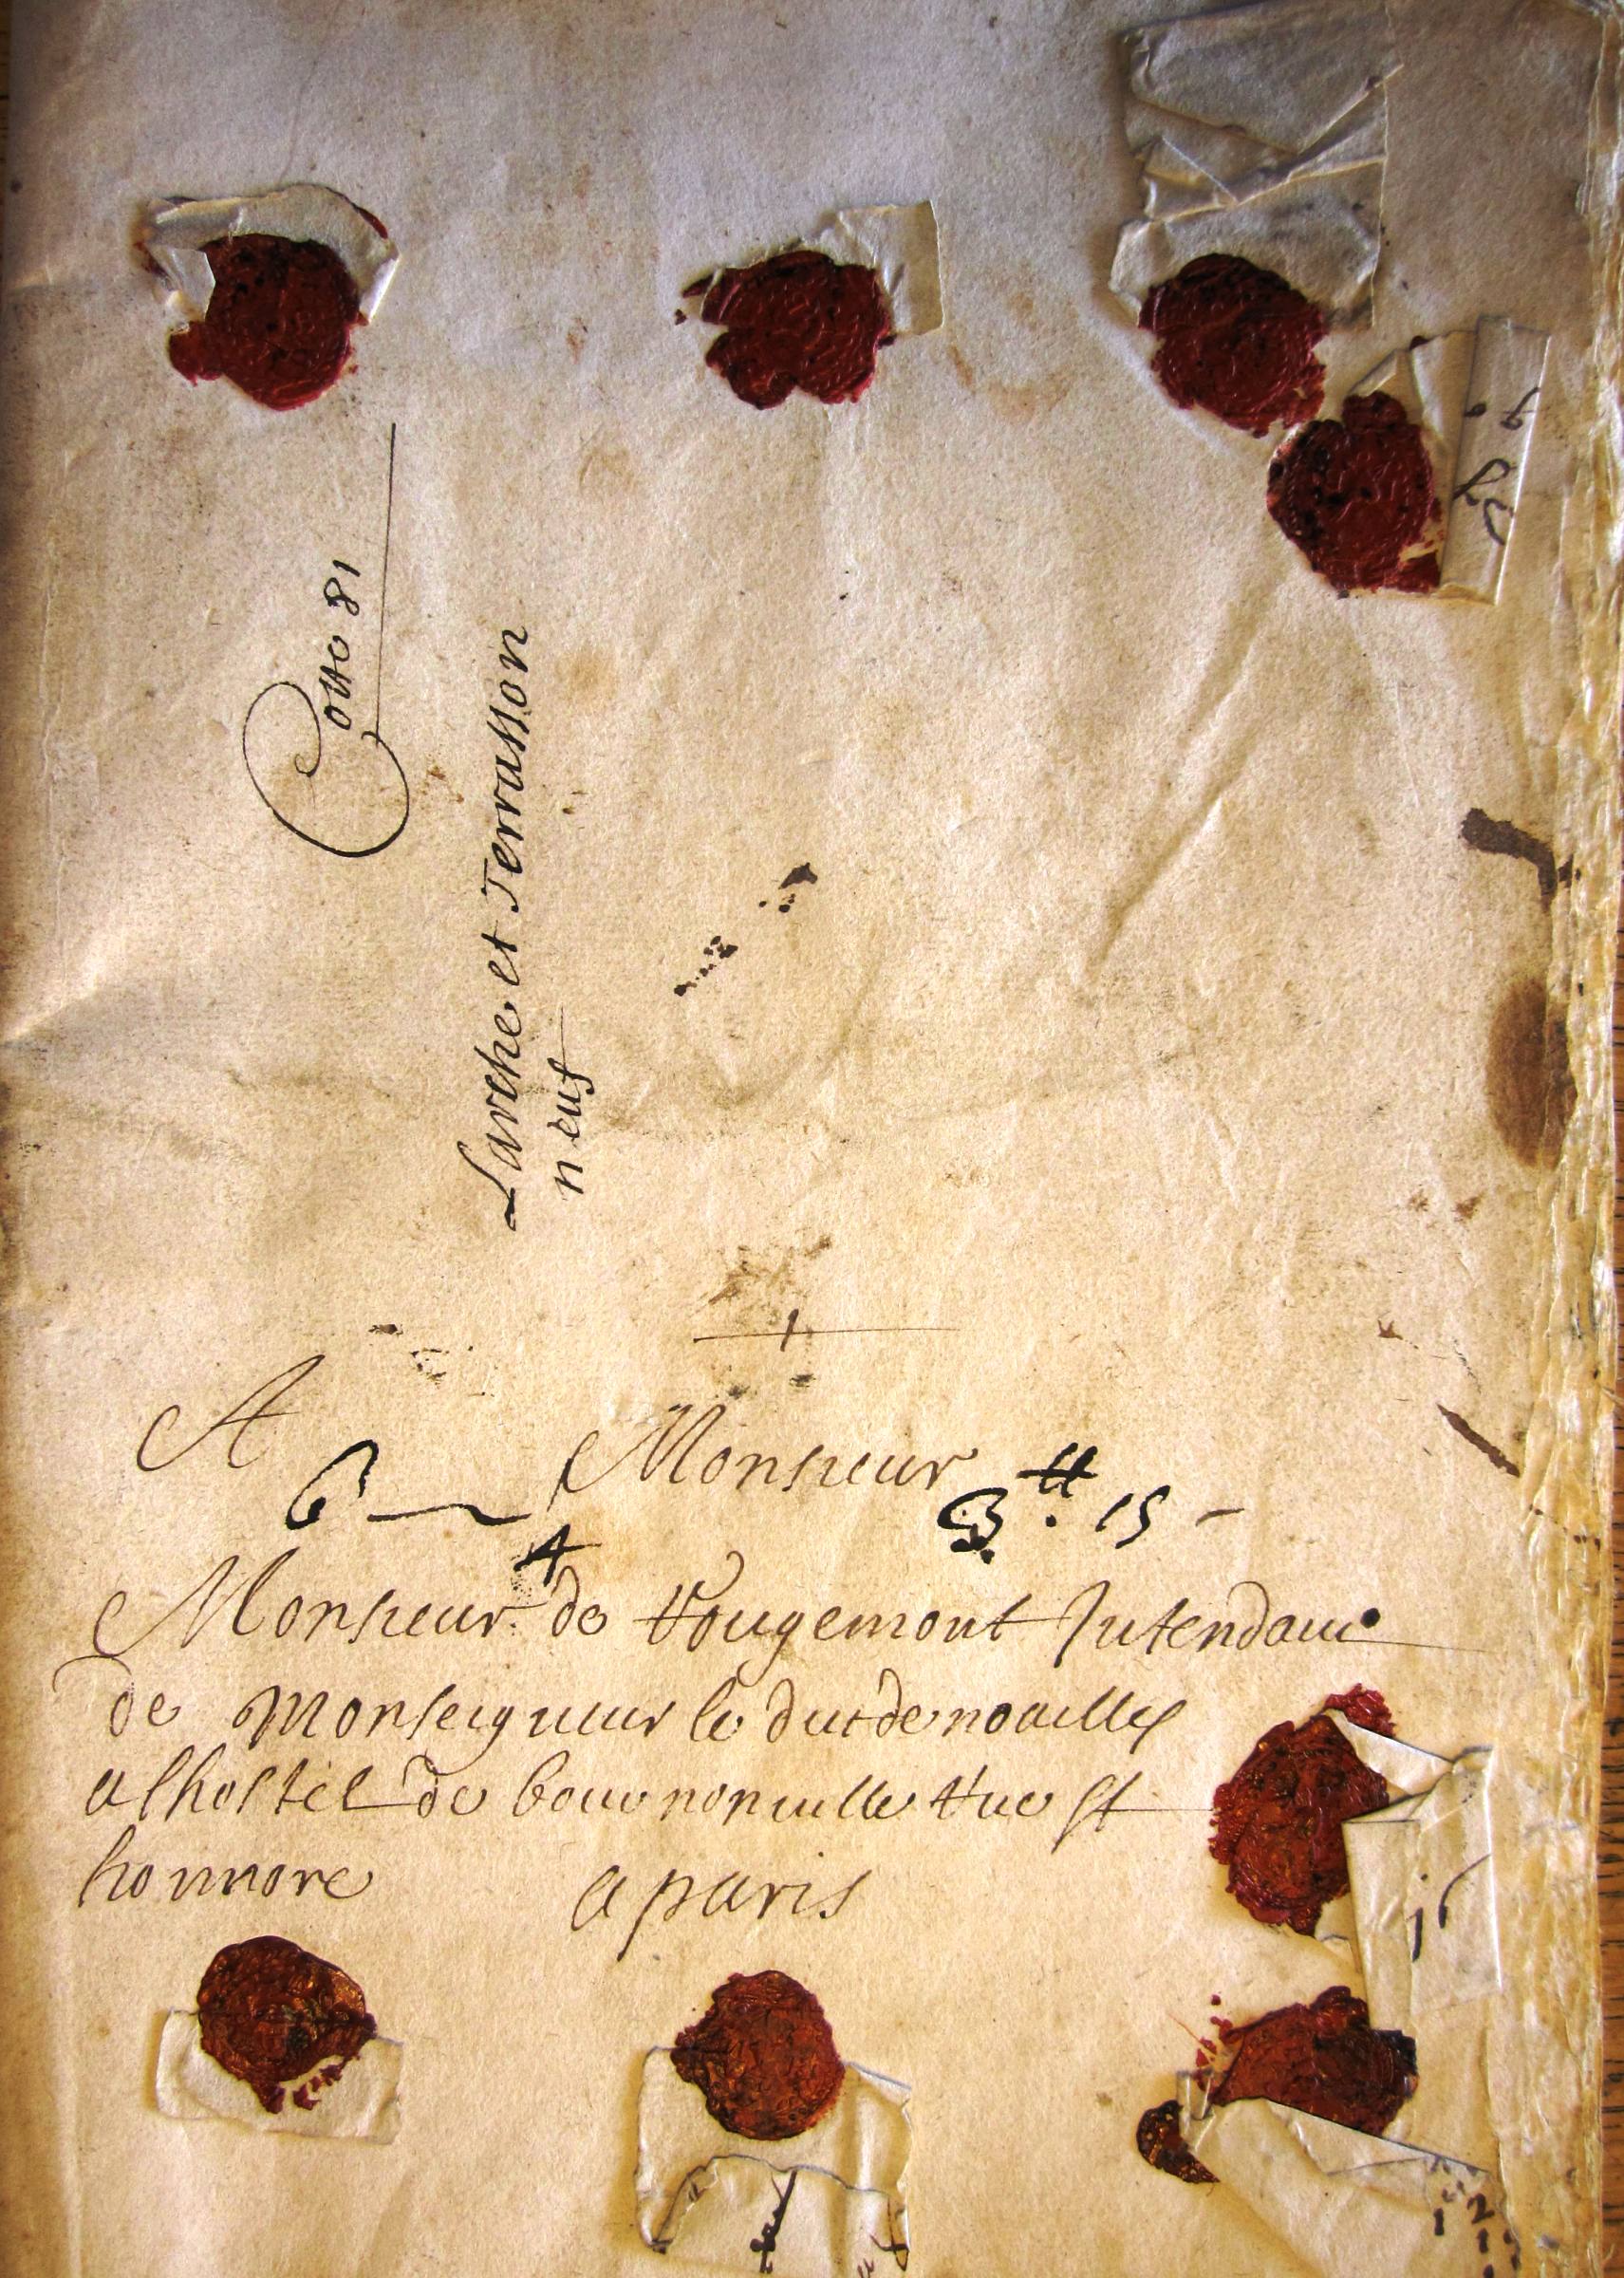 Cotte 81
Larche et Terrasson
neuf
A Monsieur
6 3tt. 15 -
4
Monsieur de Rougemont Intendant
de Monseigneur le duc de noailles
a lhostel de bournonuille Rue St
honnore a paris